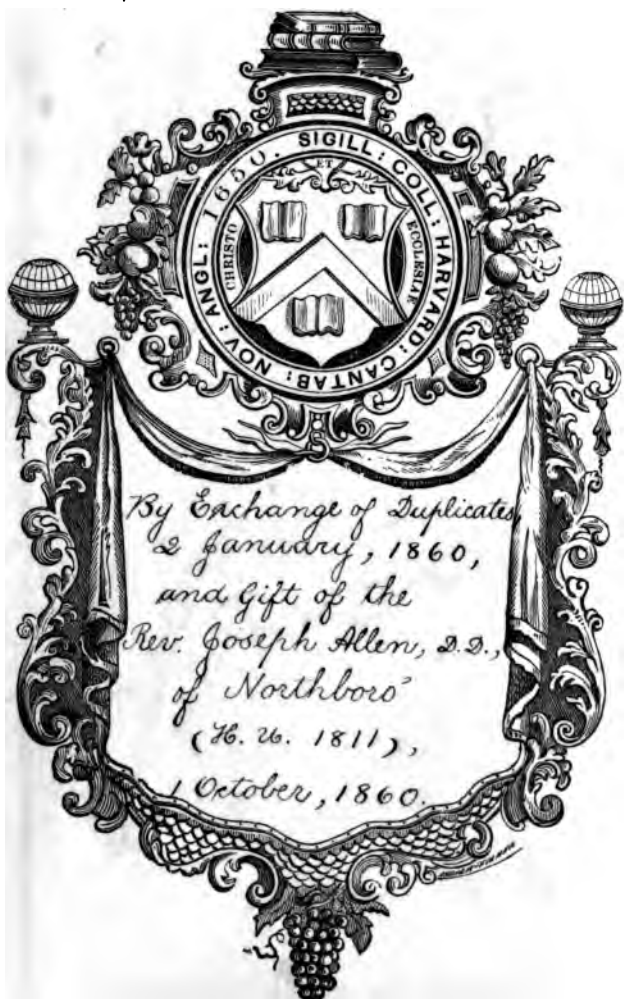 SIGILL: COLL: HARVARD: CANTAB: NOV: ANGL: 1650.
CHRISTO
ET
ECCLESIAE
By Exchange of Duplicates
2 January, 1860,
and Gift of the
Rev. Joseph Allen, D.D.,
of Northboro'
(H. U. 1811),
1 October, 1860.